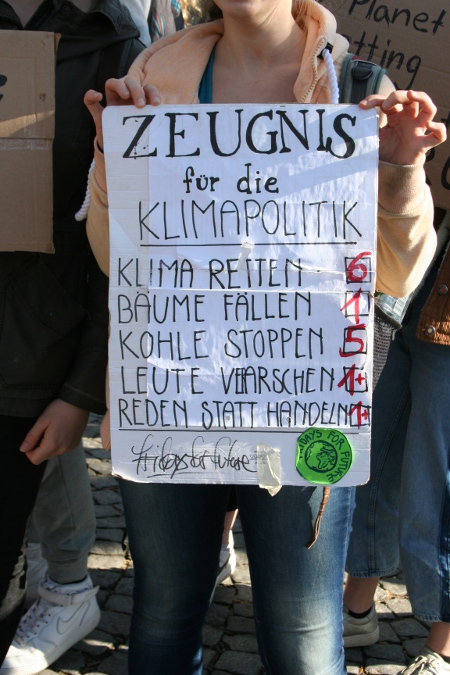 Planet
tting
ZEUGNIS
für die
KLIMAPOLITIK
KLIMA RETTEN 6
BÄUME FÄLLEN 1
KOHLE STOPPEN 5
LEUTE VERARSCHEN 1+
REDEN STATT HANDELN 1+
fridays for future
FRIDAYS FOR FUTURE